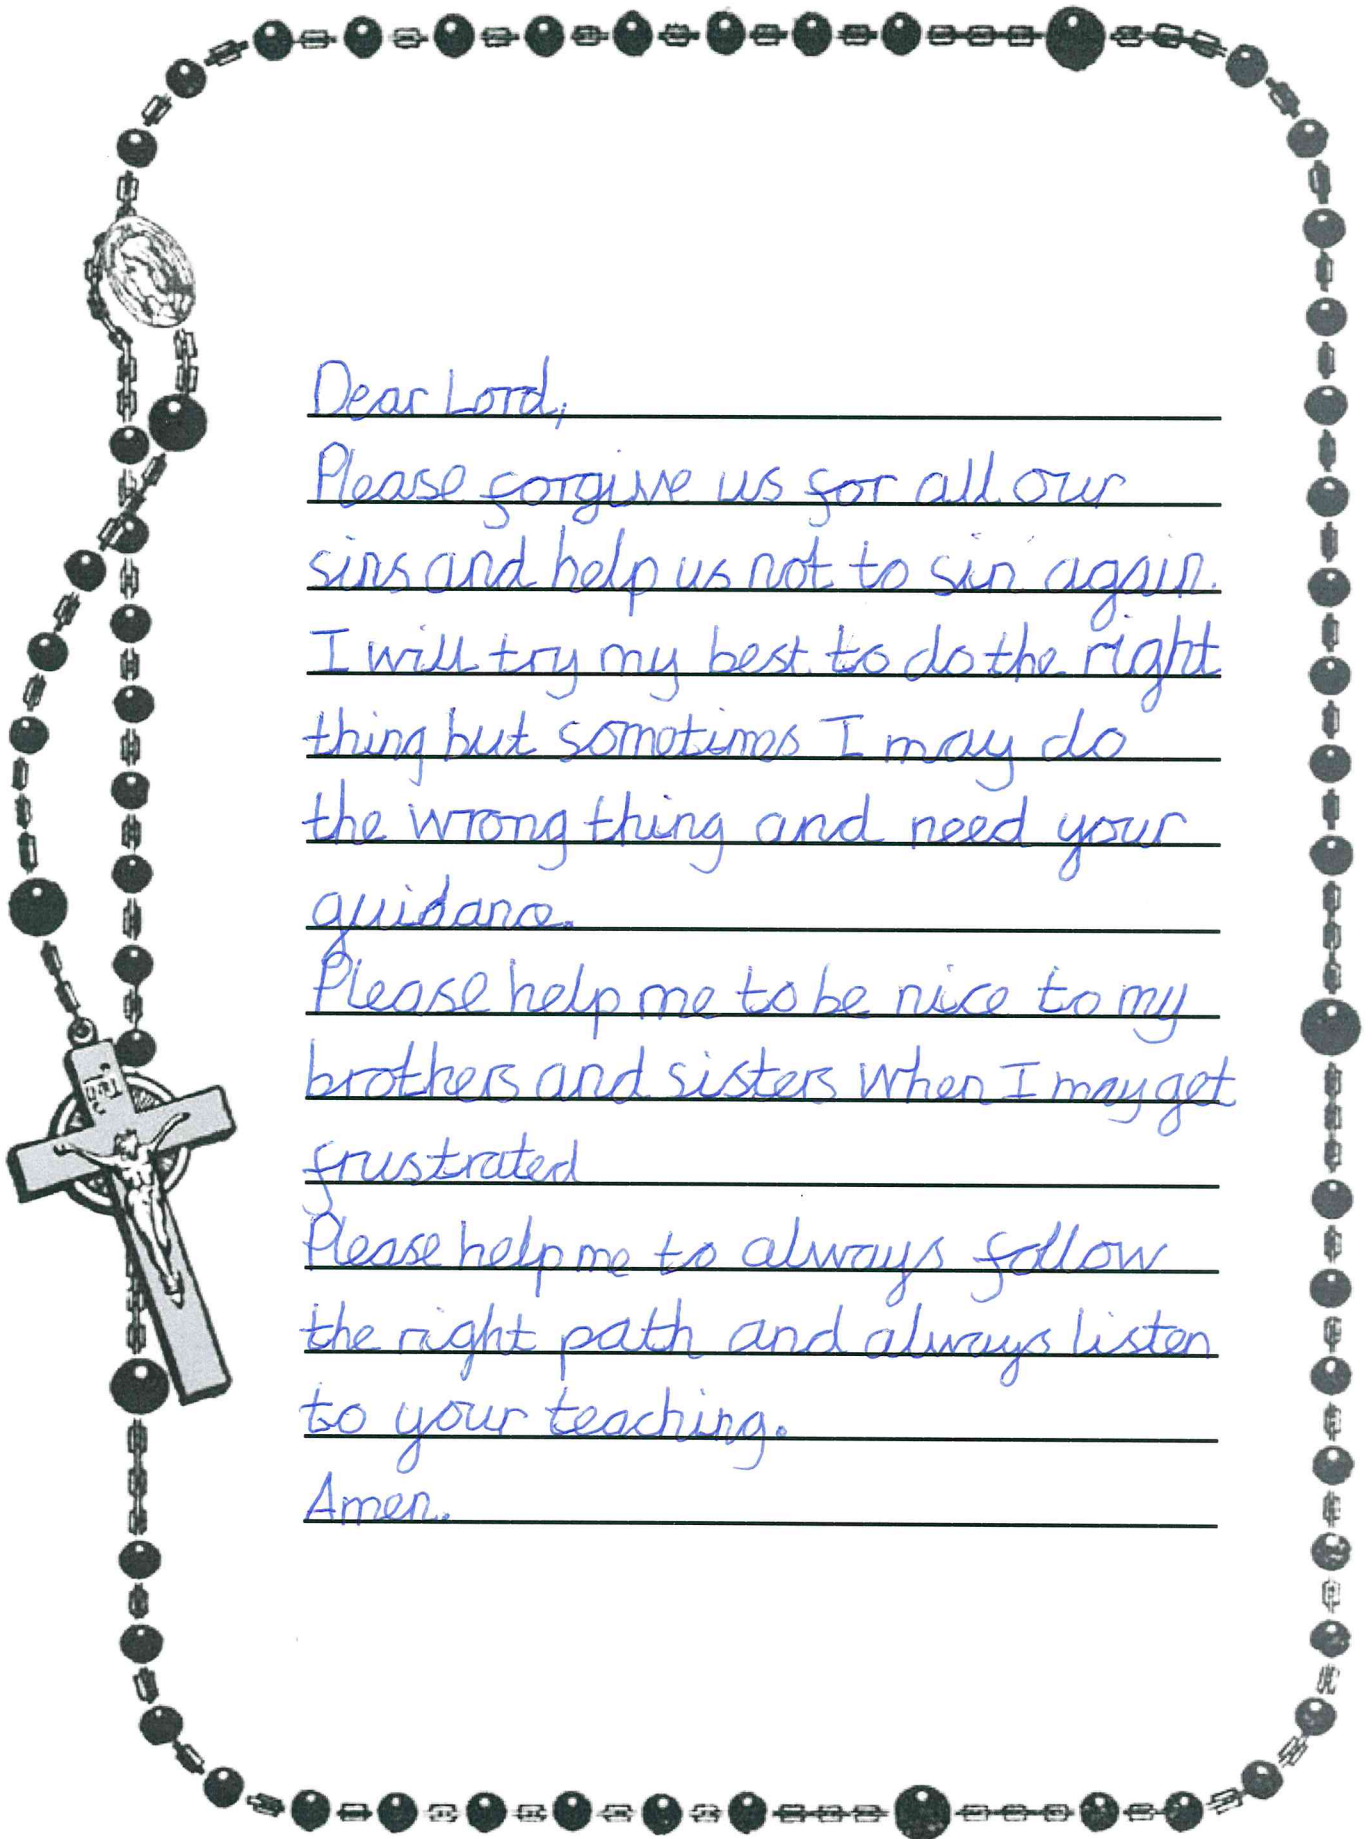 Dear Lord,
Please forgive us for all our
sins and help us not to sin again.
I will try my best to do the right
thing but sometimes I may do
the wrong thing and need your
guidance.
Please help me to be nice to my
brothers and sisters when I may get
frustrated
Please help me to always follow
the right path and always listen
to your teaching.
Amen.